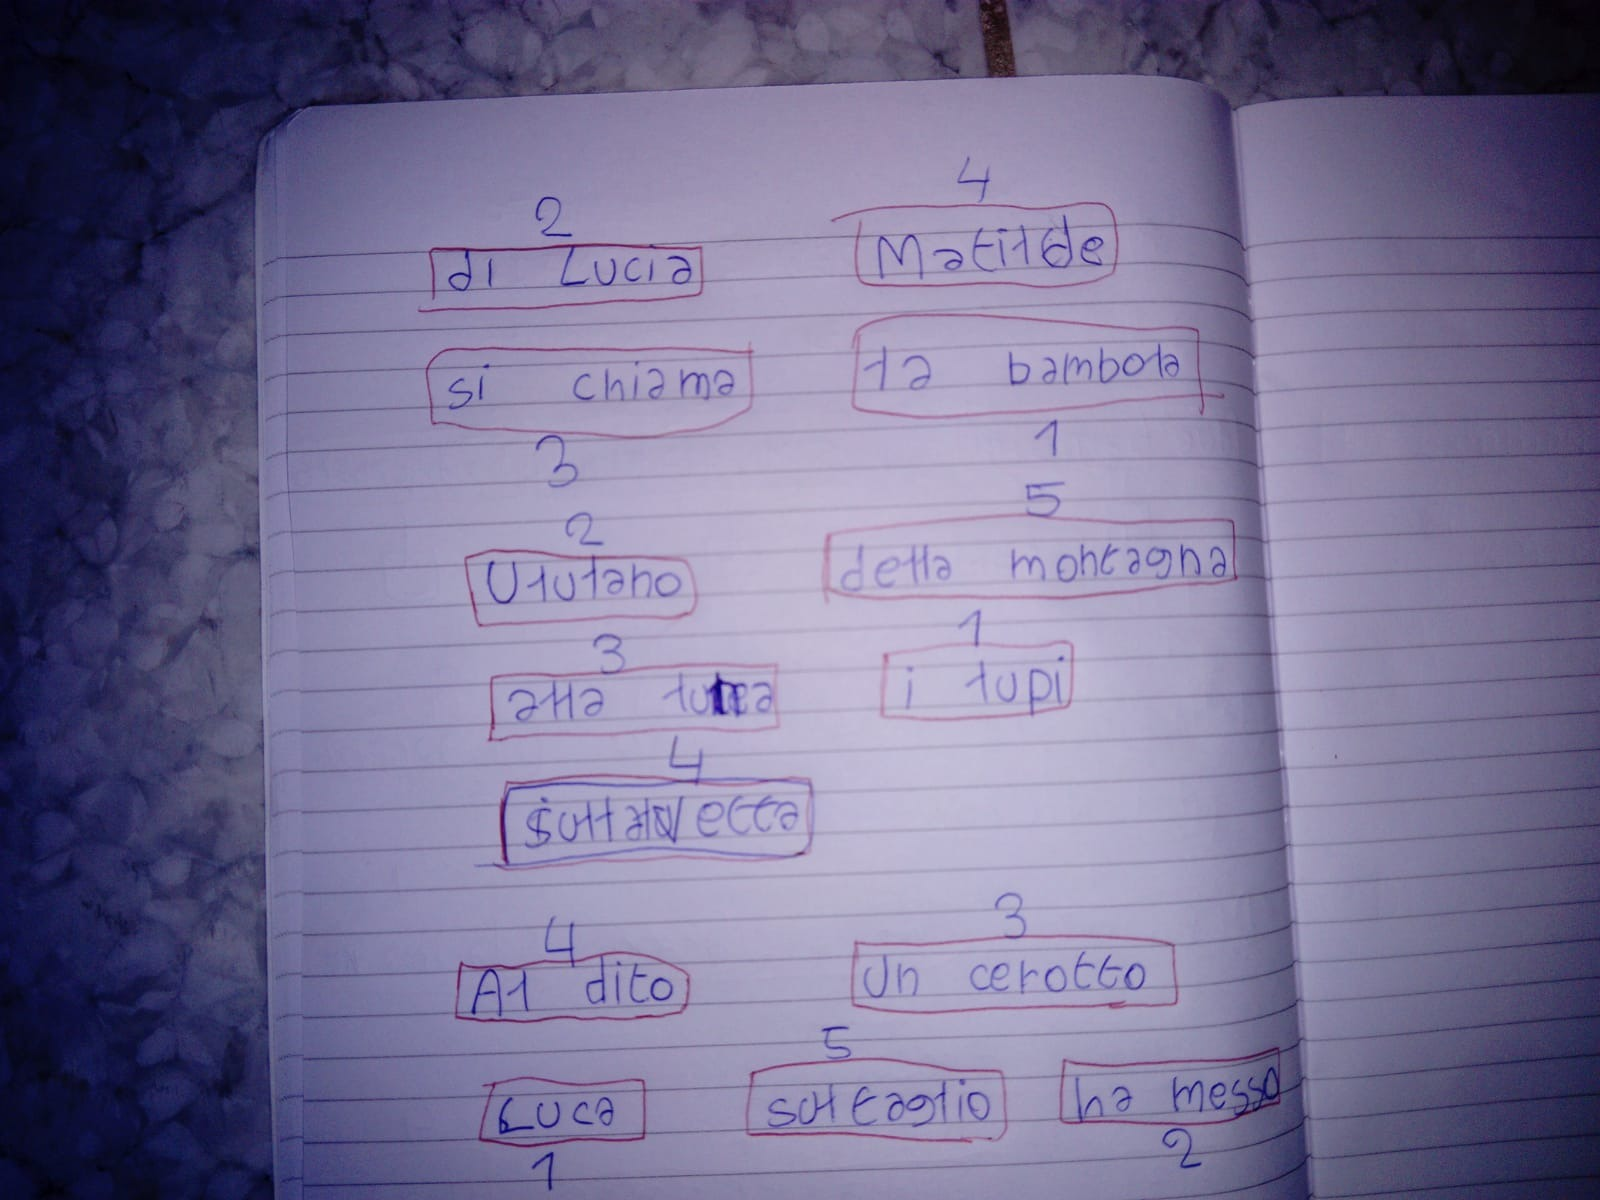 2 4
di Lucia Matilde
si chiama la bambola
3 1
2 5
Ululano della montagna
3 1
alla luna i lupi
4
sulla vetta
4 3
Al dito un cerotto
5
Luca sul taglio ha messo
1 2